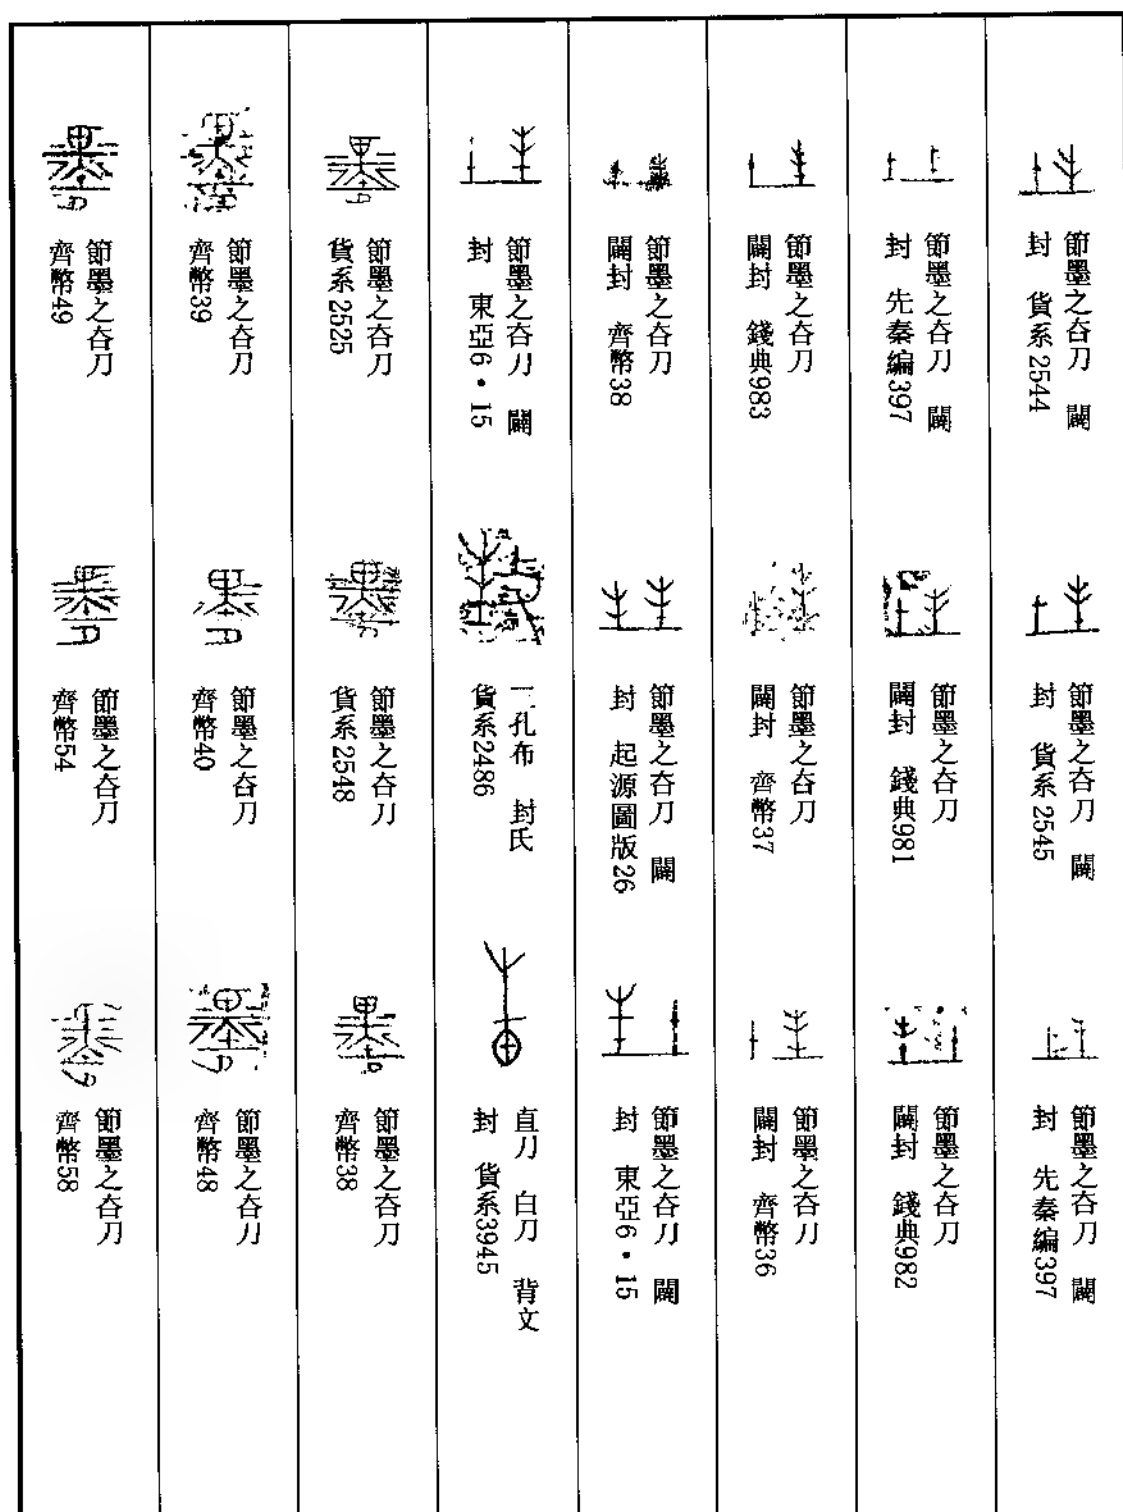 節墨之夻刀　闢
封　貨系2544
節墨之夻刀　闢
封　貨系2545
節墨之夻刀　闢
封　先秦編397
節墨之夻刀　闢
封　先秦編397
節墨之夻刀
闢封　錢典981
節墨之夻刀
闢封　錢典982
節墨之夻刀
闢封　錢典983
節墨之夻刀
闢封　齊幣37
節墨之夻刀
闢封　齊幣36
節墨之夻刀
闢封　齊幣38
節墨之夻刀　闢
封　起源圖版26
節墨之夻刀　闢
封　東亞6・15
節墨之夻刀　闢
封　東亞6・15
三孔布　封氏
貨系2486
直刀　白刀　背文
封　貨系3945
節墨之夻刀
貨系2525
節墨之夻刀
貨系2548
節墨之夻刀
齊幣38
節墨之夻刀
齊幣39
節墨之夻刀
齊幣40
節墨之夻刀
齊幣48
節墨之夻刀
齊幣49
節墨之夻刀
齊幣54
節墨之夻刀
齊幣58